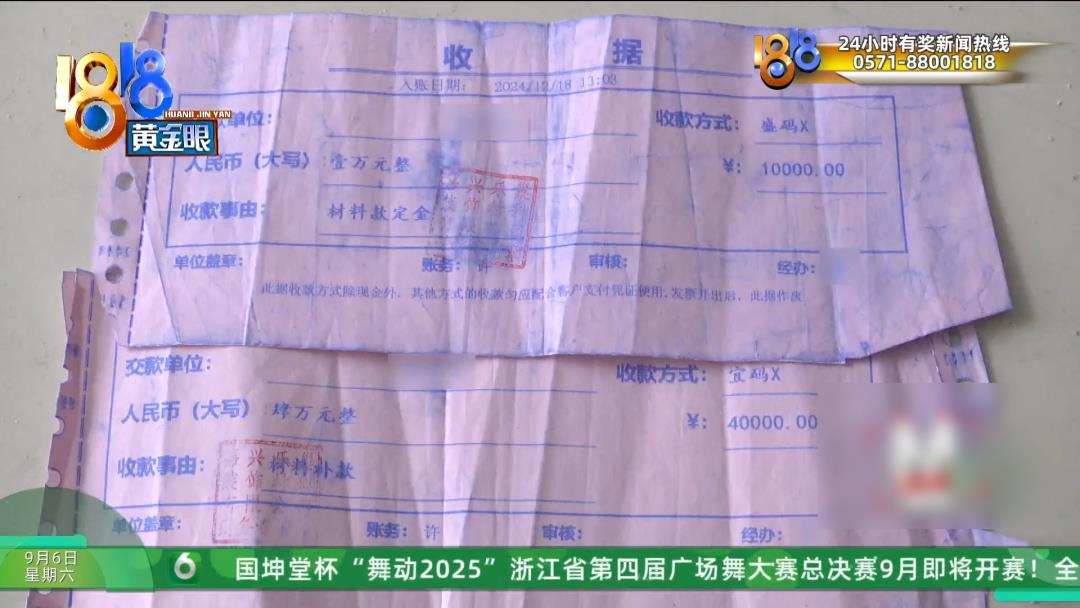 收 据
入账日期： 2024/12/18 13:03
款单位：
收款方式：盛码X
人民币（大写）壹万元整 ¥：10000.00
收款事由：材料款定金
单位盖章： 账务：许 审核： 经办：
此据收款方式除现金外，其他方式的收款均应配合客户支付凭证使用,发票开出后，此据作废
交款单位：
收款方式：宜码X
人民币（大写）肆万元整 ¥：40000.00
收款事由：材料补款
单位盖章： 账务：许 审核： 经办：
1818
HUANG JIN YAN
黄金眼
1818
24小时有奖新闻热线
0571-88001818
9月6日
星期六
6
国坤堂杯“舞动2025”浙江省第四届广场舞大赛总决赛9月即将开赛！全